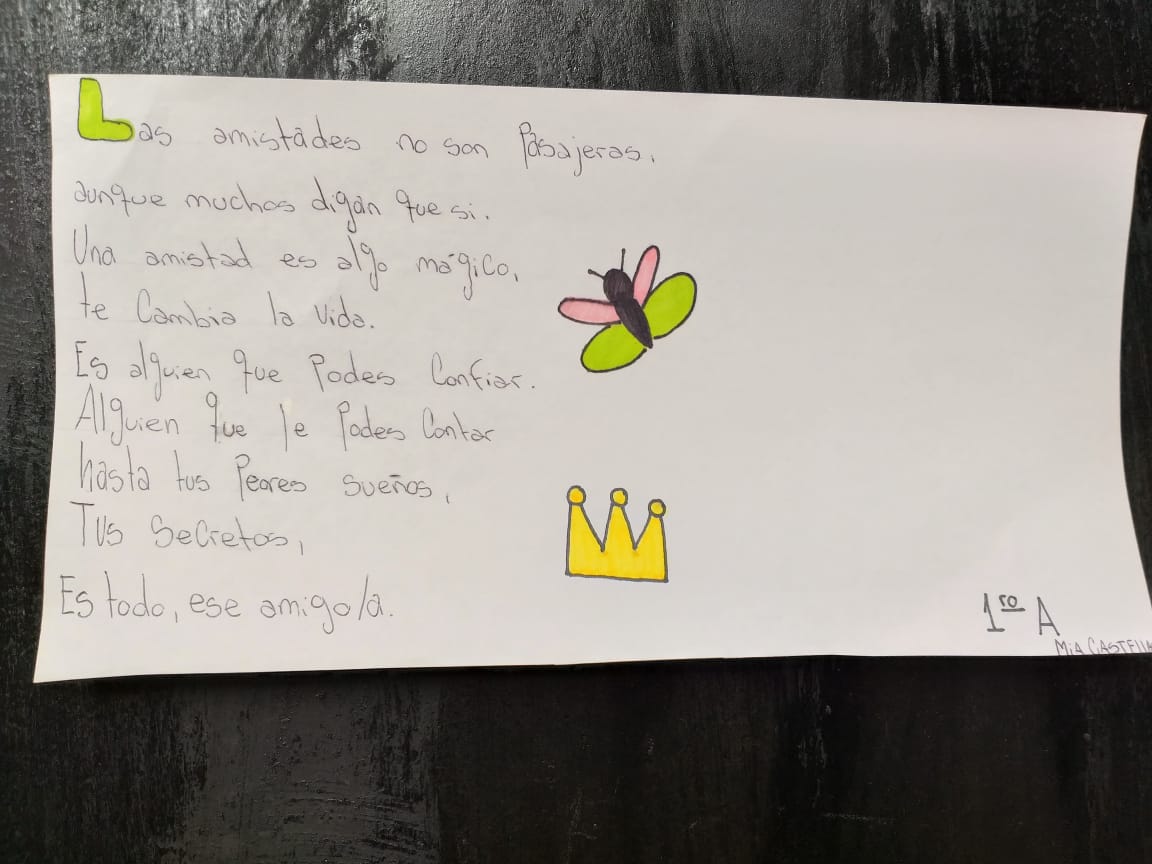 Las amistades no son Pasajeras,
aunque muchos digan que si.
Una amistad es algo mágico,
te Cambia la Vida.
Es alguien que Podes Confiar.
Alguien que le Podes Contar
hasta tus Peores sueños,
Tus Secretos,
Es todo, ese amigo/a.
1ro A
MiA